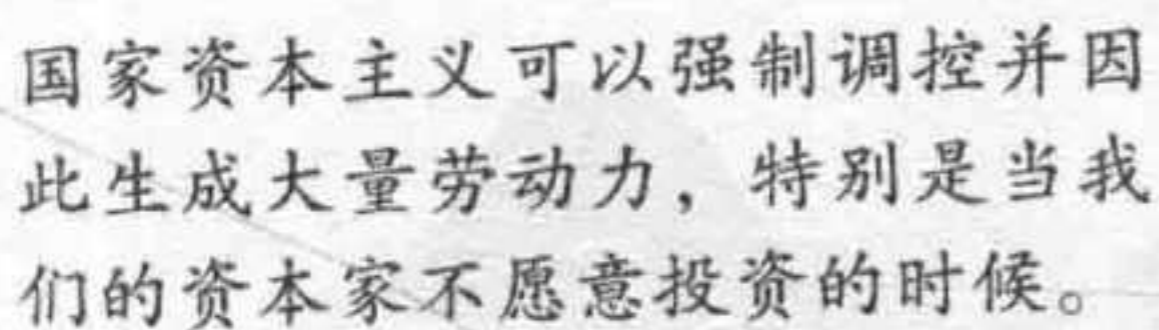 国家资本主义可以强制调控并因
此生成大量劳动力，特别是当我
们的资本家不愿意投资的时候。